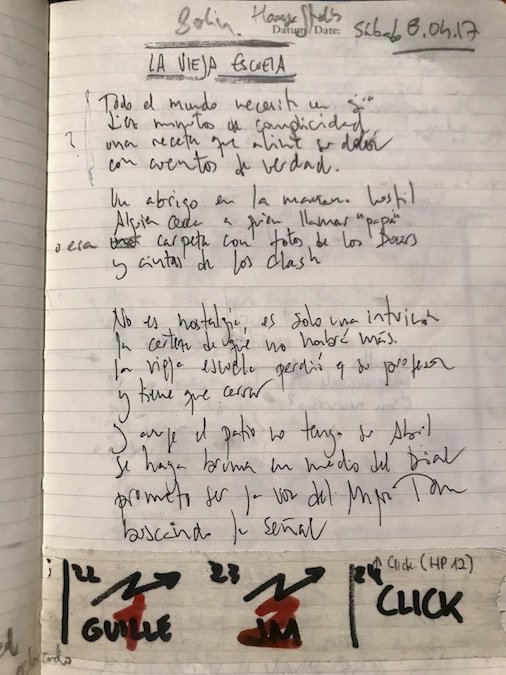 Berlin. Hansa Studios
Datum/Date: Sábado 8.04.17
LA VIEJA ESCUELA
Todo el mundo necesita un guía
diez minutos de complicidad
una receta que alivie su dolor
con cuentos de verdad.
?
Un abrigo en la mañana hostil
Alguien cerca a quien llamar "papá"
o esa carpeta con fotos de los Doors
y cintas de los Clash
No es nostalgia, es solo una intuición
la certeza de que no habrá más.
la vieja escuela perdió a su profesor
y tiene que cerrar
y aunque el patio no tenga su Abril
se haga bruma en medio del Dial
prometo ser la voz del Major Tom
buscando la señal
22 GUILLE
23 JM
24 CLICK
↑ Click (HP 12)